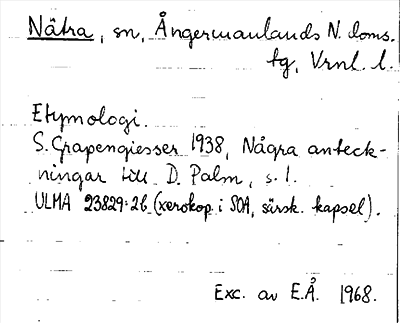 Nätra, sn, Ångermanlands N. doms.
tg, Vrnl. l.
Etymologi.
S. Grapengiesser 1938, Några anteck-
ningar till D. Palm, s. 1.
ULMA 23829:26 (xerokop. i SOA, särsk. kapsel).
Exc. av E.Å. 1968.